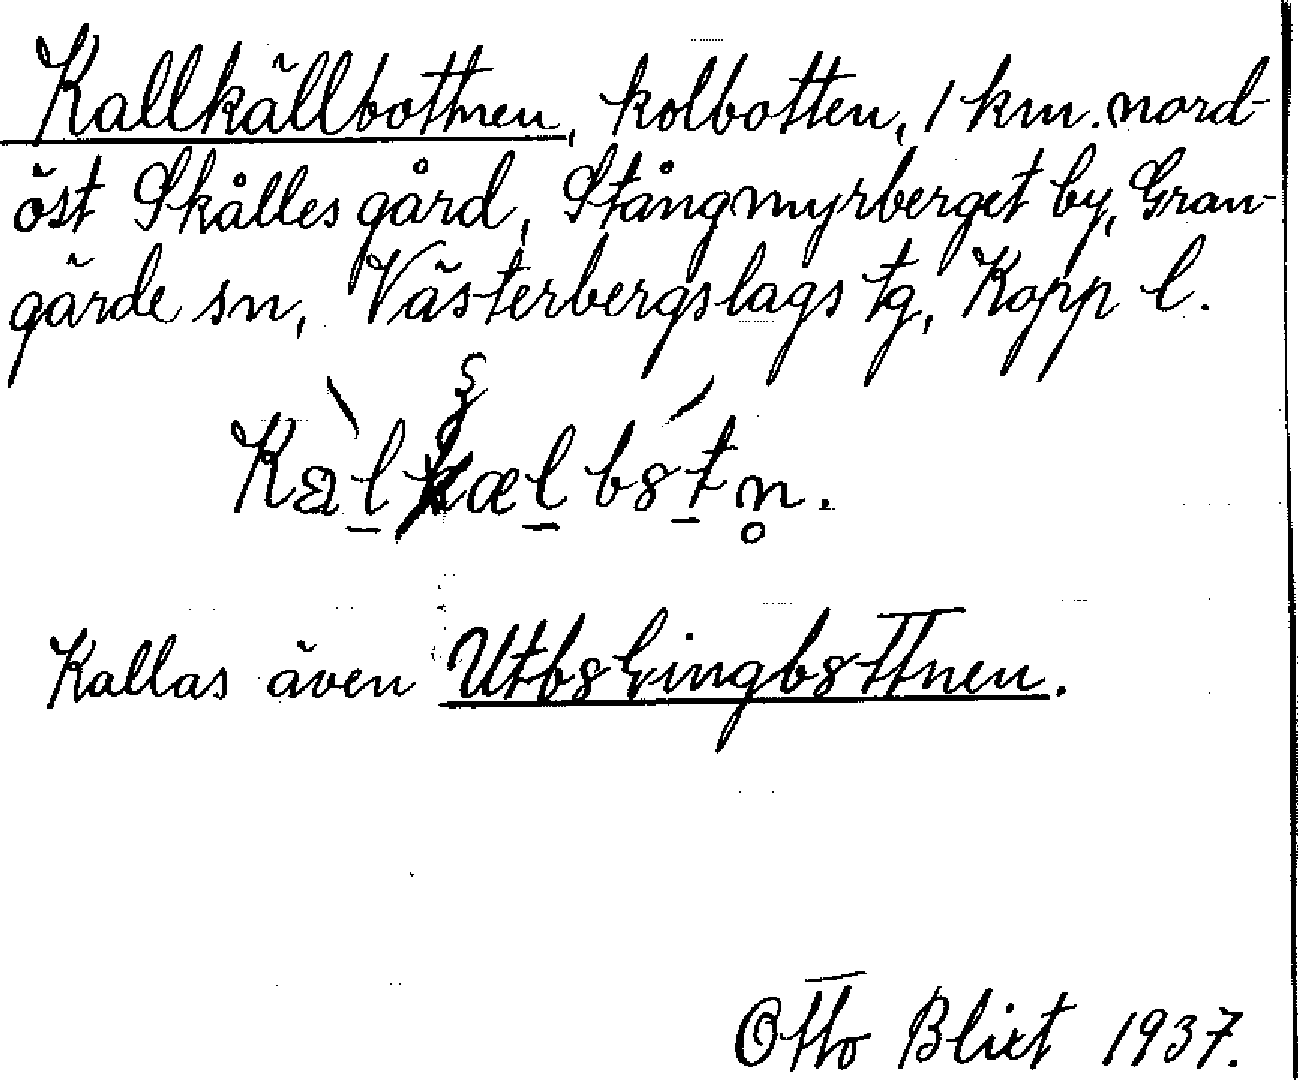 Kallkällbottnen, kolbotten, 1 km. nord-
öst Skålles gård, Stångmyrberget by, Gran-
gärde sn, Västerbergslags tg, Kopp l.
Kallas även
Otto Blixt 1937.